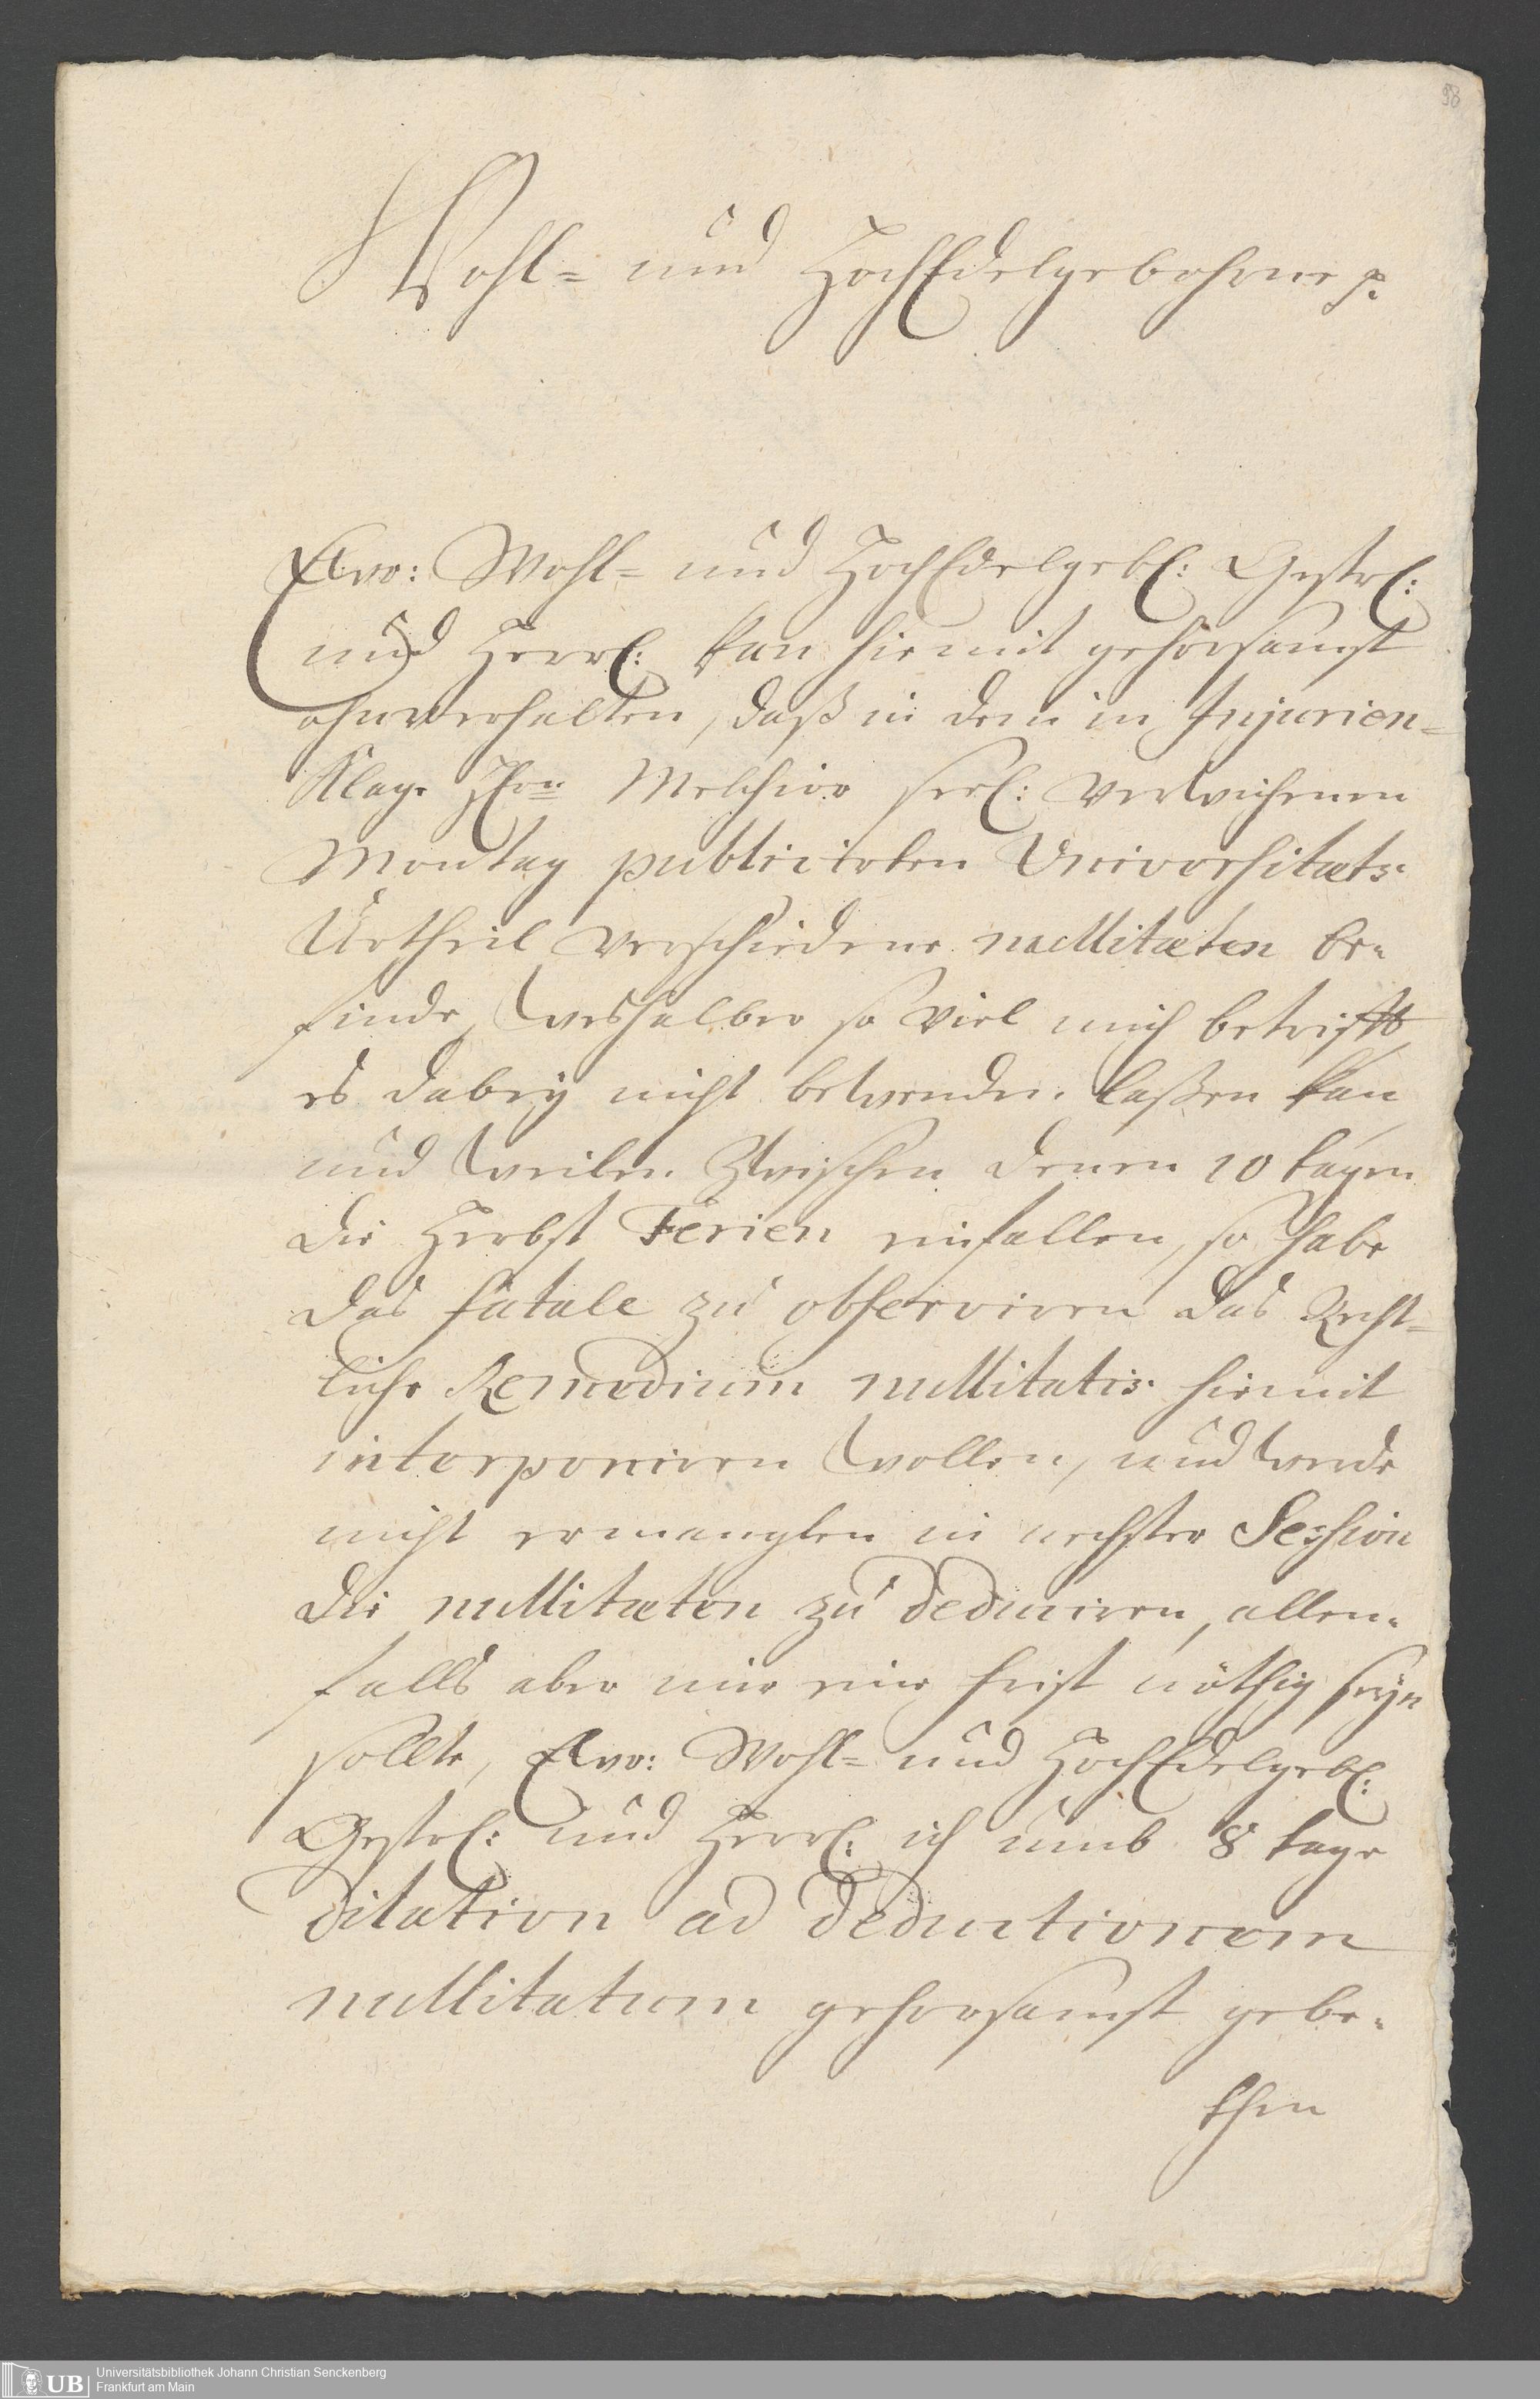 98
Wohl- und HochEdelgebohrne p.
Ewr: Wohl- und HochEdelgebl: Gestrl:
und Herrl: kan hiemit gehorsamst
ohnverhalten, daß in dem in Injurien-
Klage Hrn Melchior seel: verwichenen
Montag publicirten Universitæts-
Urtheil verschiedene nullitæten be-
finde, weshalber so viel mich betrifft
es dabeÿ nicht bewenden laßen kan
und weilen zwischen denen 10 tagen
die Herbst Ferien einfallen, so habe
das fatale zu observiren das Recht-
liche Remedium nullitatis hiemit
interponiren wollen, und werde
nicht ermanglen in nechster Session
die nullitæten zu deduciren, allen-
falls aber mir eine frist nöthig seÿn
sollte, Ewr: Wohl- und HochEdelgebl:
Gestrl: und Herrl: ich umb 8 tage
dilation ad deductionem
nullitatum gehorsamst gebe-
then
UB
Universitätsbibliothek Johann Christian Senckenberg
Frankfurt am Main